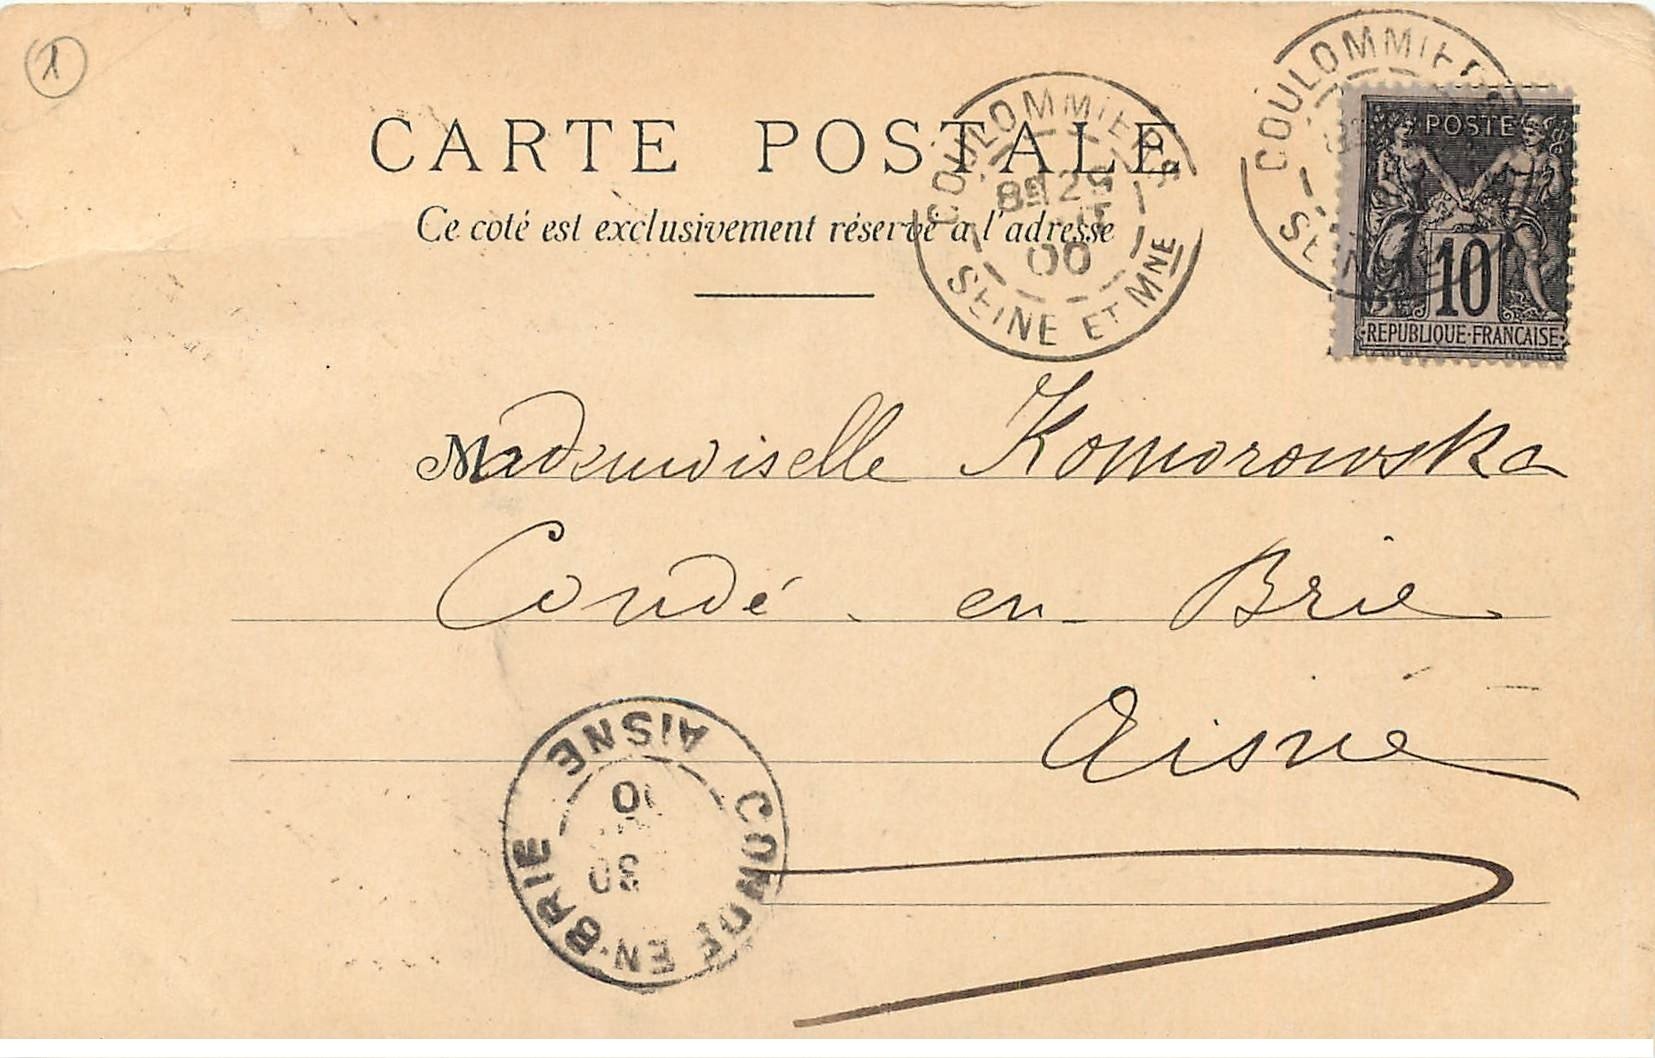 1
CARTE POSTALE
Ce coté est exclusivement réservé a l'adresse
COULOMMIERS
8E 29
00
SEINE ET MNE
COULOMMIERS
SEINE
POSTE
10
REPUBLIQUE FRANCAISE
Mademoiselle Komorowska
Condé en Brie
Aisne
CONDE EN-BRIE
AISNE
30
00